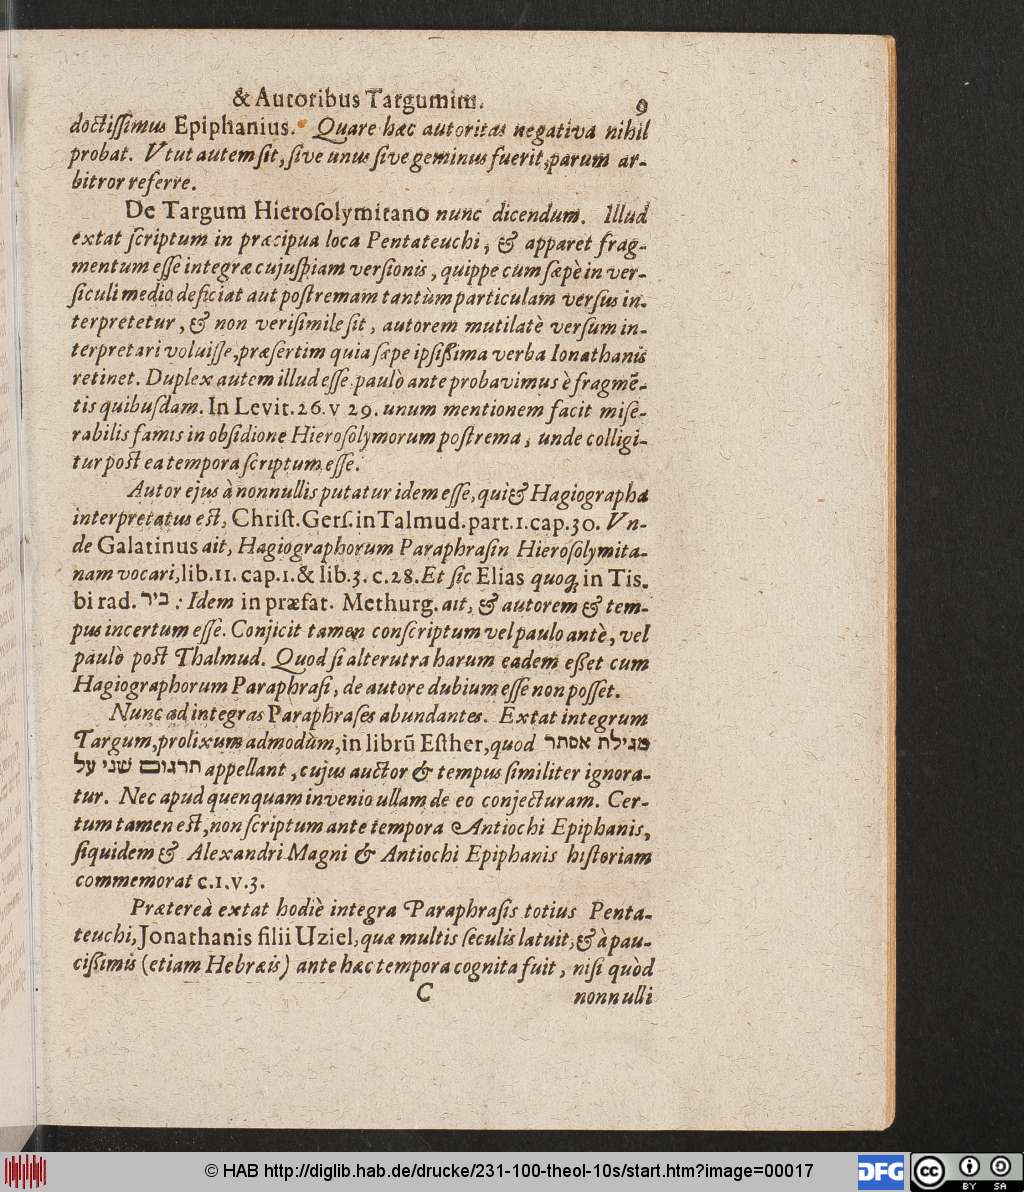 & Autoribus Targumim. 9
doctissimus Epiphanius. Quare hæc autoritas negativa nihil
probat. Vtut autem sit, sive unus sive geminus fuerit, parum ar-
bitror referre.
De Targum Hierosolymitano nunc dicendum. Illud
extat scriptum in præcipua loca Pentateuchi, & apparet frag-
mentum esse integræ cujuspiam versionis, quippe cum sæpè in ver-
siculi medio deficiat aut postremam tantùm particulam versus in-
terpretetur, & non verisimile sit, autorem mutilatè versum in-
terpretari voluisse, præsertim quia sæpe ipsißima verba Ionathanis
retinet. Duplex autem illud esse paulò ante probavimus è fragmē-
tis quibusdam. In Levit. 26. v 29. unum mentionem facit mise-
rabilis famis in obsidione Hierosolymorum postrema, unde colligi-
tur post ea tempora scriptum esse.
Autor ejus à nonnullis putatur idem esse, qui & Hagiographa
interpretatus est, Christ. Gers. in Talmud. part. 1. cap. 30. Vn-
de Galatinus ait, Hagiographorum Paraphrasin Hierosolymita-
nam vocari, lib. 11. cap. 1. & lib. 3. c. 28. Et sic Elias quoq; in Tis-
bi rad. ביר : Idem in præfat. Methurg. ait, & autorem & tem-
pus incertum esse. Conjicit tamen conscriptum vel paulo antè, vel
paulò post Thalmud. Quod si alterutra harum eadem eßet cum
Hagiographorum Paraphrasi, de autore dubium esse non posset.
Nunc ad integras Paraphrases abundantes. Extat integrum
Targum, prolixum admodùm, in librū Esther, quod מגילת אסתר
תרגום שני על appellant, cujus auctor & tempus similiter ignora-
tur. Nec apud quenquam invenio ullam de eo conjecturam. Cer-
tum tamen est, non scriptum ante tempora Antiochi Epiphanis,
siquidem & Alexandri Magni & Antiochi Epiphanis historiam
commemorat c. 1. v. 3.
Prætereà extat hodiè integra Paraphrasis totius Penta-
teuchi, Jonathanis filii Uziel, quæ multis seculis latuit, & à pau-
cißimis (etiam Hebræis) ante hæc tempora cognita fuit, nisi quòd
C nonnulli
© HAB http://diglib.hab.de/drucke/231-100-theol-10s/start.htm?image=00017
DFG cc BY SA